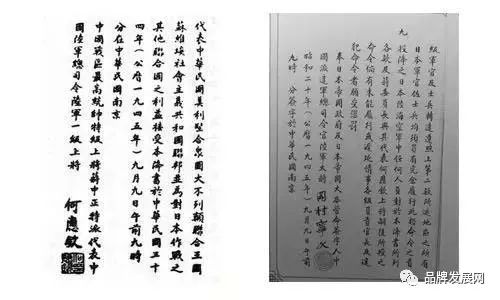 級軍官及士兵轉達遵照上第二款所述地區之所有
日本軍官佐士兵均須負有完全履行此類命令之責
九 投降之日本陸海空軍中任何人員對於本降書所列
各款及蔣委員長與其代表何應欽上將嗣後所授之
命令倘有未能履行或遲延情事各級負責官長及違
犯命令者願受懲罰
奉日本帝國政府及日本帝國大本營命簽字人中
國派遣軍總司令官陸軍大將 岡村寧次
昭和二十年(公曆一九四五年)九月九日午前
九時 分簽字於中華民國南京
代表中華民國美利堅合眾國大不列顛聯合王國
蘇維埃社會主義共和國聯邦並為對日本作戰之
其他聯合國之利益接受本降書於中華民國三十
四年(公曆一九四五年)九月九日午前九時
分在中華民國南京
中國戰區最高統帥特級上將蔣中正特派代表中
國陸軍總司令陸軍一級上將
何應欽
品牌发展网